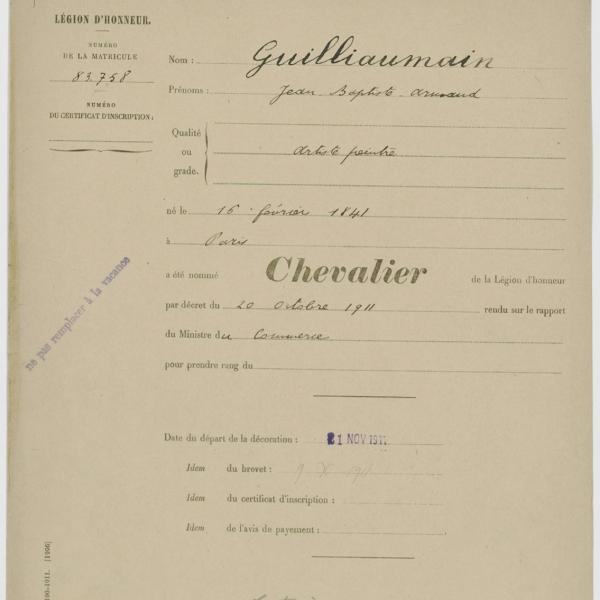 LÉGION D'HONNEUR.
NUMÉRO
DE LA MATRICULE
83.758
NUMÉRO
DU CERTIFICAT D'INSCRIPTION:
Nom : Guilliaumain
Prénoms : Jean Baptiste Armand
Qualité
ou
grade.
Artiste peintre
né le 16 février 1841
à Paris
a été nommé Chevalier de la Légion d'honneur
par décret du 20 Octobre 1911 rendu sur le rapport
du Ministre du Commerce
pour prendre rang du
ne pas remplacer à la vacance
Date du départ de la décoration : 21 NOV 1911
Idem du brevet : 9 X 1911
Idem du certificat d'inscription :
Idem de l'avis de payement :
100-1911. [1906]